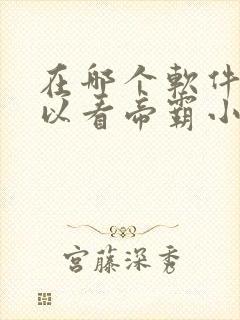 在哪个软件
以看帝霸小
宫藤深秀